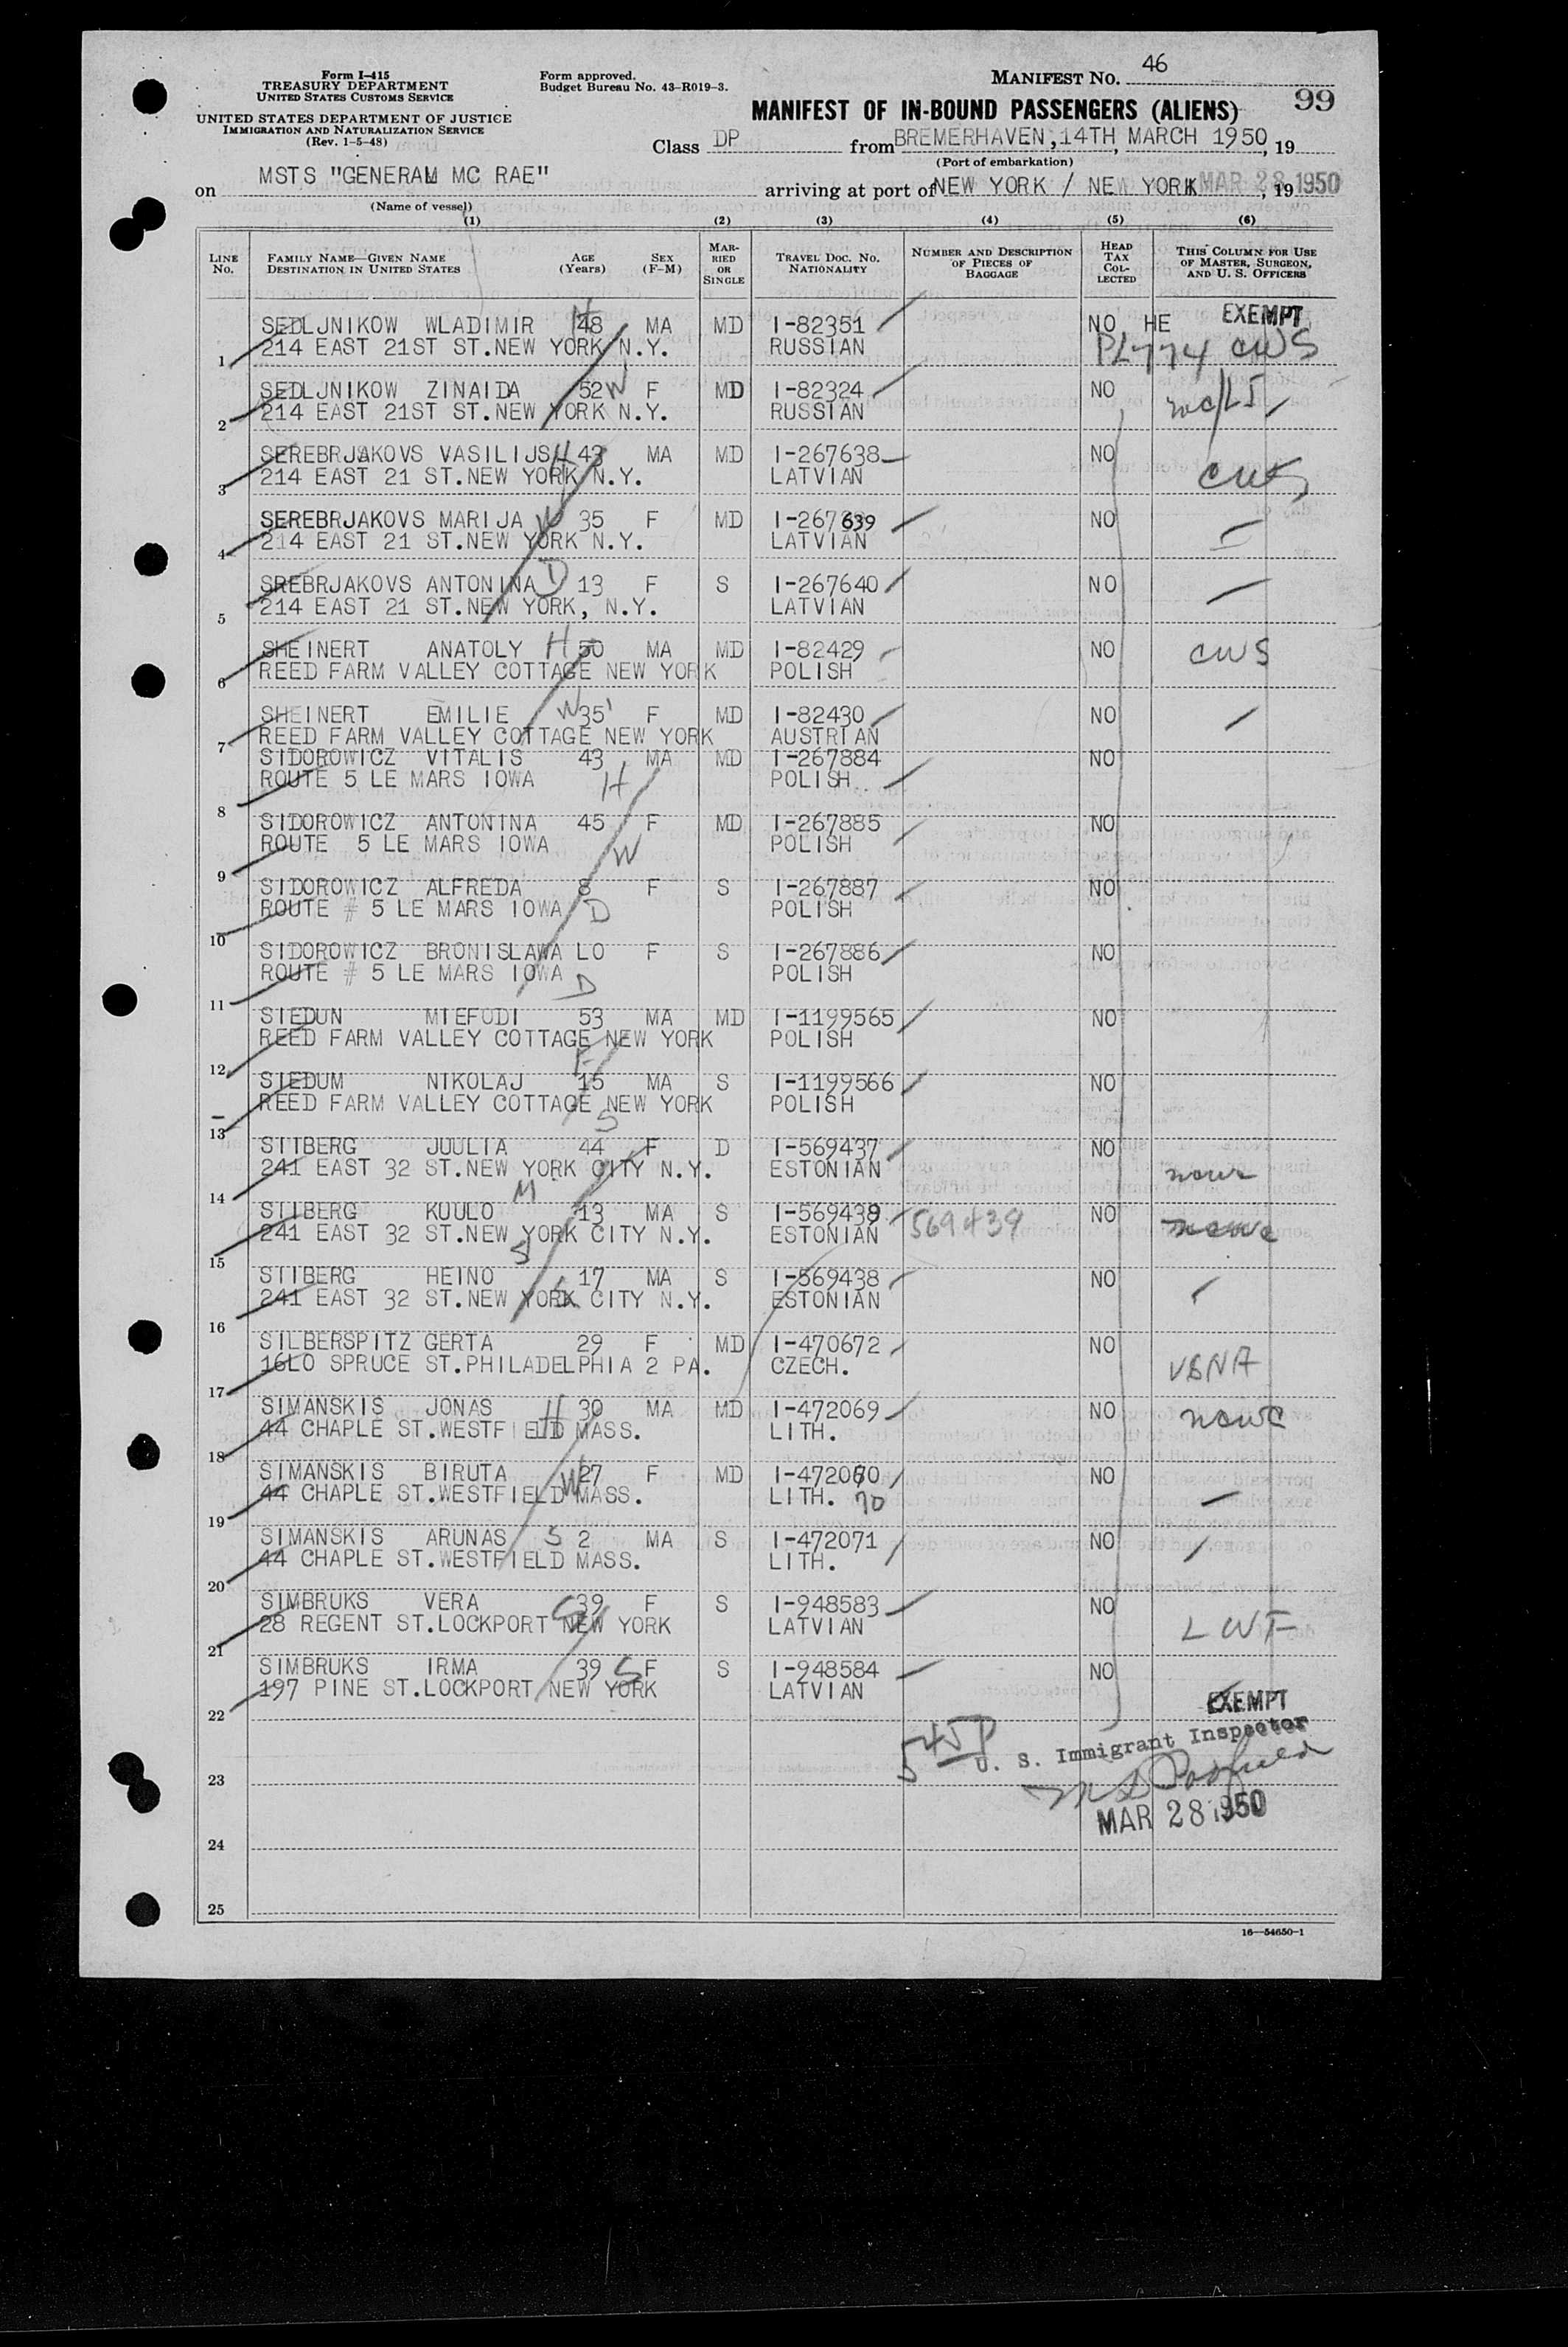 Form I-415
TREASURY DEPARTMENT
UNITED STATES CUSTOMS SERVICE
UNITED STATES DEPARTMENT OF JUSTICE
IMMIGRATION AND NATURALIZATION SERVICE
(Rev. 1-5-48)
Form approved.
Budget Bureau No. 43-R019-3.
MANIFEST NO. 46
99
MANIFEST OF IN-BOUND PASSENGERS (ALIENS)
Class DP from BREMERHAVEN, 14TH, MARCH 1950, 19
(Port of embarkation)
on MSTS "GENERAL MC RAE" arriving at port of NEW YORK / NEW YORK MAR 28 1950, 19
(Name of vessel)
(1) (2) (3) (4) (5) (6)
LINE NO. FAMILY NAME—GIVEN NAME DESTINATION IN UNITED STATES AGE (Years) SEX (F-M) MARRIED OR SINGLE TRAVEL DOC. NO. NATIONALITY NUMBER AND DESCRIPTION OF PIECES OF BAGGAGE HEAD TAX COLLECTED THIS COLUMN FOR USE OF MASTER, SURGEON, AND U. S. OFFICERS
SEDLJNIKOW WLADIMIR H 48 MA MD I-82351 NO HE EXEMPT
1 214 EAST 21ST ST.NEW YORK N.Y. RUSSIAN PL774 CWS
SEDLJNIKOW ZINAIDA 52 W F MD I-82324 NO
2 214 EAST 21ST ST.NEW YORK N.Y. RUSSIAN
SEREBRJAKOVS VASILIJS H 43 MA MD I-267638 NO
3 214 EAST 21 ST.NEW YORK N.Y. LATVIAN CWS
SEREBRJAKOVS MARIJA W 35 F MD I-267639 NO
4 214 EAST 21 ST.NEW YORK N.Y. LATVIAN
SREBRJAKOVS ANTONINA D 13 F S I-267640 NO
5 214 EAST 21 ST.NEW YORK, N.Y. LATVIAN
SHEINERT ANATOLY H 50 MA MD I-82429 NO CWS
6 REED FARM VALLEY COTTAGE NEW YORK POLISH
SHEINERT EMILIE W 35 F MD I-82430 NO
7 REED FARM VALLEY COTTAGE NEW YORK AUSTRIAN
SIDOROWICZ VITALIS 43 MA MD I-267884 NO
8 ROUTE 5 LE MARS IOWA H POLISH
SIDOROWICZ ANTONINA 45 F MD I-267885 NO
9 ROUTE 5 LE MARS IOWA W POLISH
SIDOROWICZ ALFREDA 8 F S I-267887 NO
10 ROUTE # 5 LE MARS IOWA D POLISH
SIDOROWICZ BRONISLAWA LO F S I-267886 NO
11 ROUTE # 5 LE MARS IOWA D POLISH
SIEDUN MIEFODI 53 MA MD I-1199565 NO
12 REED FARM VALLEY COTTAGE NEW YORK F POLISH
SIEDUM NIKOLAJ 15 MA S I-1199566 NO
13 REED FARM VALLEY COTTAGE NEW YORK S POLISH
SIIBERG JUULIA 44 F D I-569437 NO
14 241 EAST 32 ST.NEW YORK CITY N.Y. M ESTONIAN
SIIBERG KUULO 13 MA S I-569439 569439 NO
15 241 EAST 32 ST.NEW YORK CITY N.Y. S ESTONIAN
SIIBERG HEINO 17 MA S I-569438 NO
16 241 EAST 32 ST.NEW YORK CITY N.Y. S ESTONIAN
SILBERSPITZ GERTA 29 F MD I-470672 NO
17 16LO SPRUCE ST.PHILADELPHIA 2 PA. CZECH. USNA
SIMANSKIS JONAS H 30 MA MD I-472069 NO NCWC
18 44 CHAPLE ST.WESTFIELD MASS. LITH.
SIMANSKIS BIRUTA W 27 F MD I-472070 NO
19 44 CHAPLE ST.WESTFIELD MASS. LITH. 70
SIMANSKIS ARUNAS S 2 MA S I-472071 NO
20 44 CHAPLE ST.WESTFIELD MASS. LITH.
SIMBRUKS VERA 39 F S I-948583 NO
21 28 REGENT ST.LOCKPORT S NEW YORK LATVIAN LWF
SIMBRUKS IRMA 39 S F S I-948584 NO
22 197 PINE ST.LOCKPORT NEW YORK LATVIAN
EXEMPT
U. S. Immigrant Inspector
23
MAR 28 1950
24
25
16—54650-1